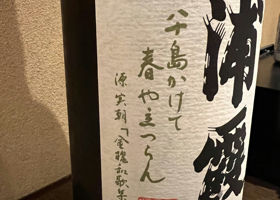 浦霞
八十島かけて
春や立つらん
源実朝「金槐和歌集